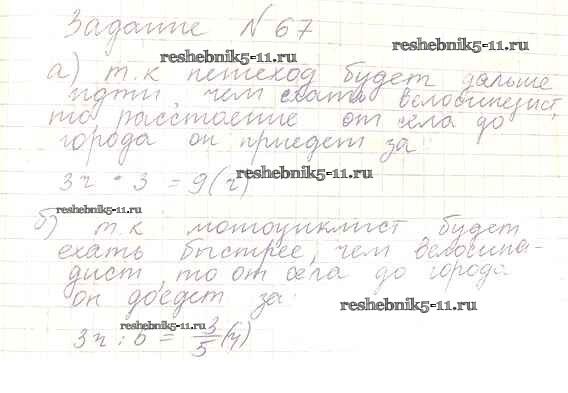 Задание № 67
reshebnik5-11.ru
reshebnik5-11.ru
а) т.к пешеход будет дальше
идти, чем ехать велосипедист,
то расстояние от села до
города он придет за
3ч * 3 = 9(ч)
reshebnik5-11.ru
reshebnik5-11.ru
б) т.к мотоциклист будет
ехать быстрее, чем велосипе-
дист, то от села до города
он доедет за:
reshebnik5-11.ru
reshebnik5-11.ru
3ч : 5 = 3/5 (ч)